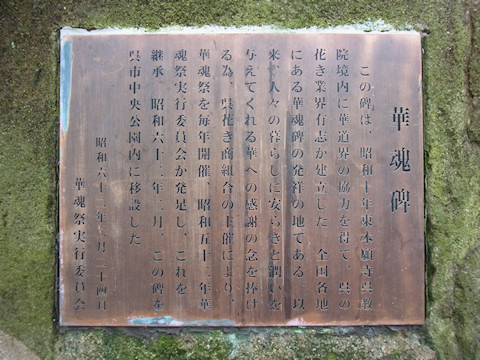 華魂碑
この碑は、昭和十年東本願寺呉教
院境内に華道界の協力を得て、呉の
花き業界有志が建立した 全国各地
にある華魂碑の発祥の地である。以
来、人々の暮らしに安らぎと潤いを
与えてくれる華への感謝の念を捧げ
る為、呉花き商組合の主催により、
華魂祭を毎年開催、昭和五十二年華
魂祭実行委員会が発足し、これを
継承、昭和六十三年二月、この碑を
呉市中央公園内に移設した
昭和六十三年 月二十四日
華魂祭実行委員会